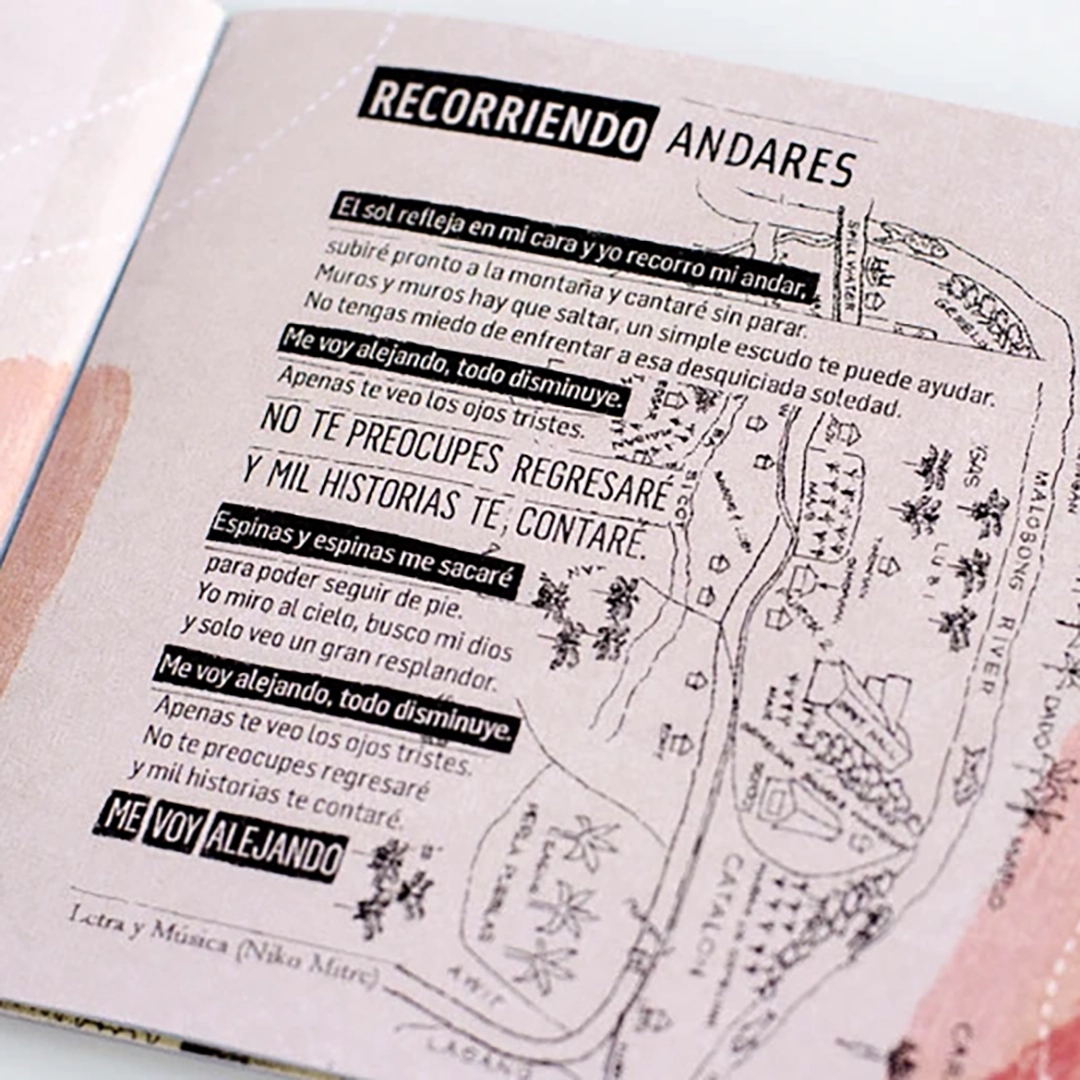 RECORRIENDO ANDARES
El sol refleja en mi cara y yo recorro mi andar,
subiré pronto a la montaña y cantaré sin parar.
Muros y muros hay que saltar, un simple escudo te puede ayudar.
No tengas miedo de enfrentar a esa desquiciada soledad.
Me voy alejando, todo disminuye.
Apenas te veo los ojos tristes.
NO TE PREOCUPES REGRESARÉ
Y MIL HISTORIAS TE CONTARÉ.
Espinas y espinas me sacaré
para poder seguir de pie.
Yo miro al cielo, busco mi dios
y solo veo un gran resplandor.
Me voy alejando, todo disminuye.
Apenas te veo los ojos tristes.
No te preocupes regresaré
y mil historias te contaré.
ME VOY ALEJANDO
Letra y Música (Niko Mitre)
MALOBONG RIVER
LUBI
CATALON